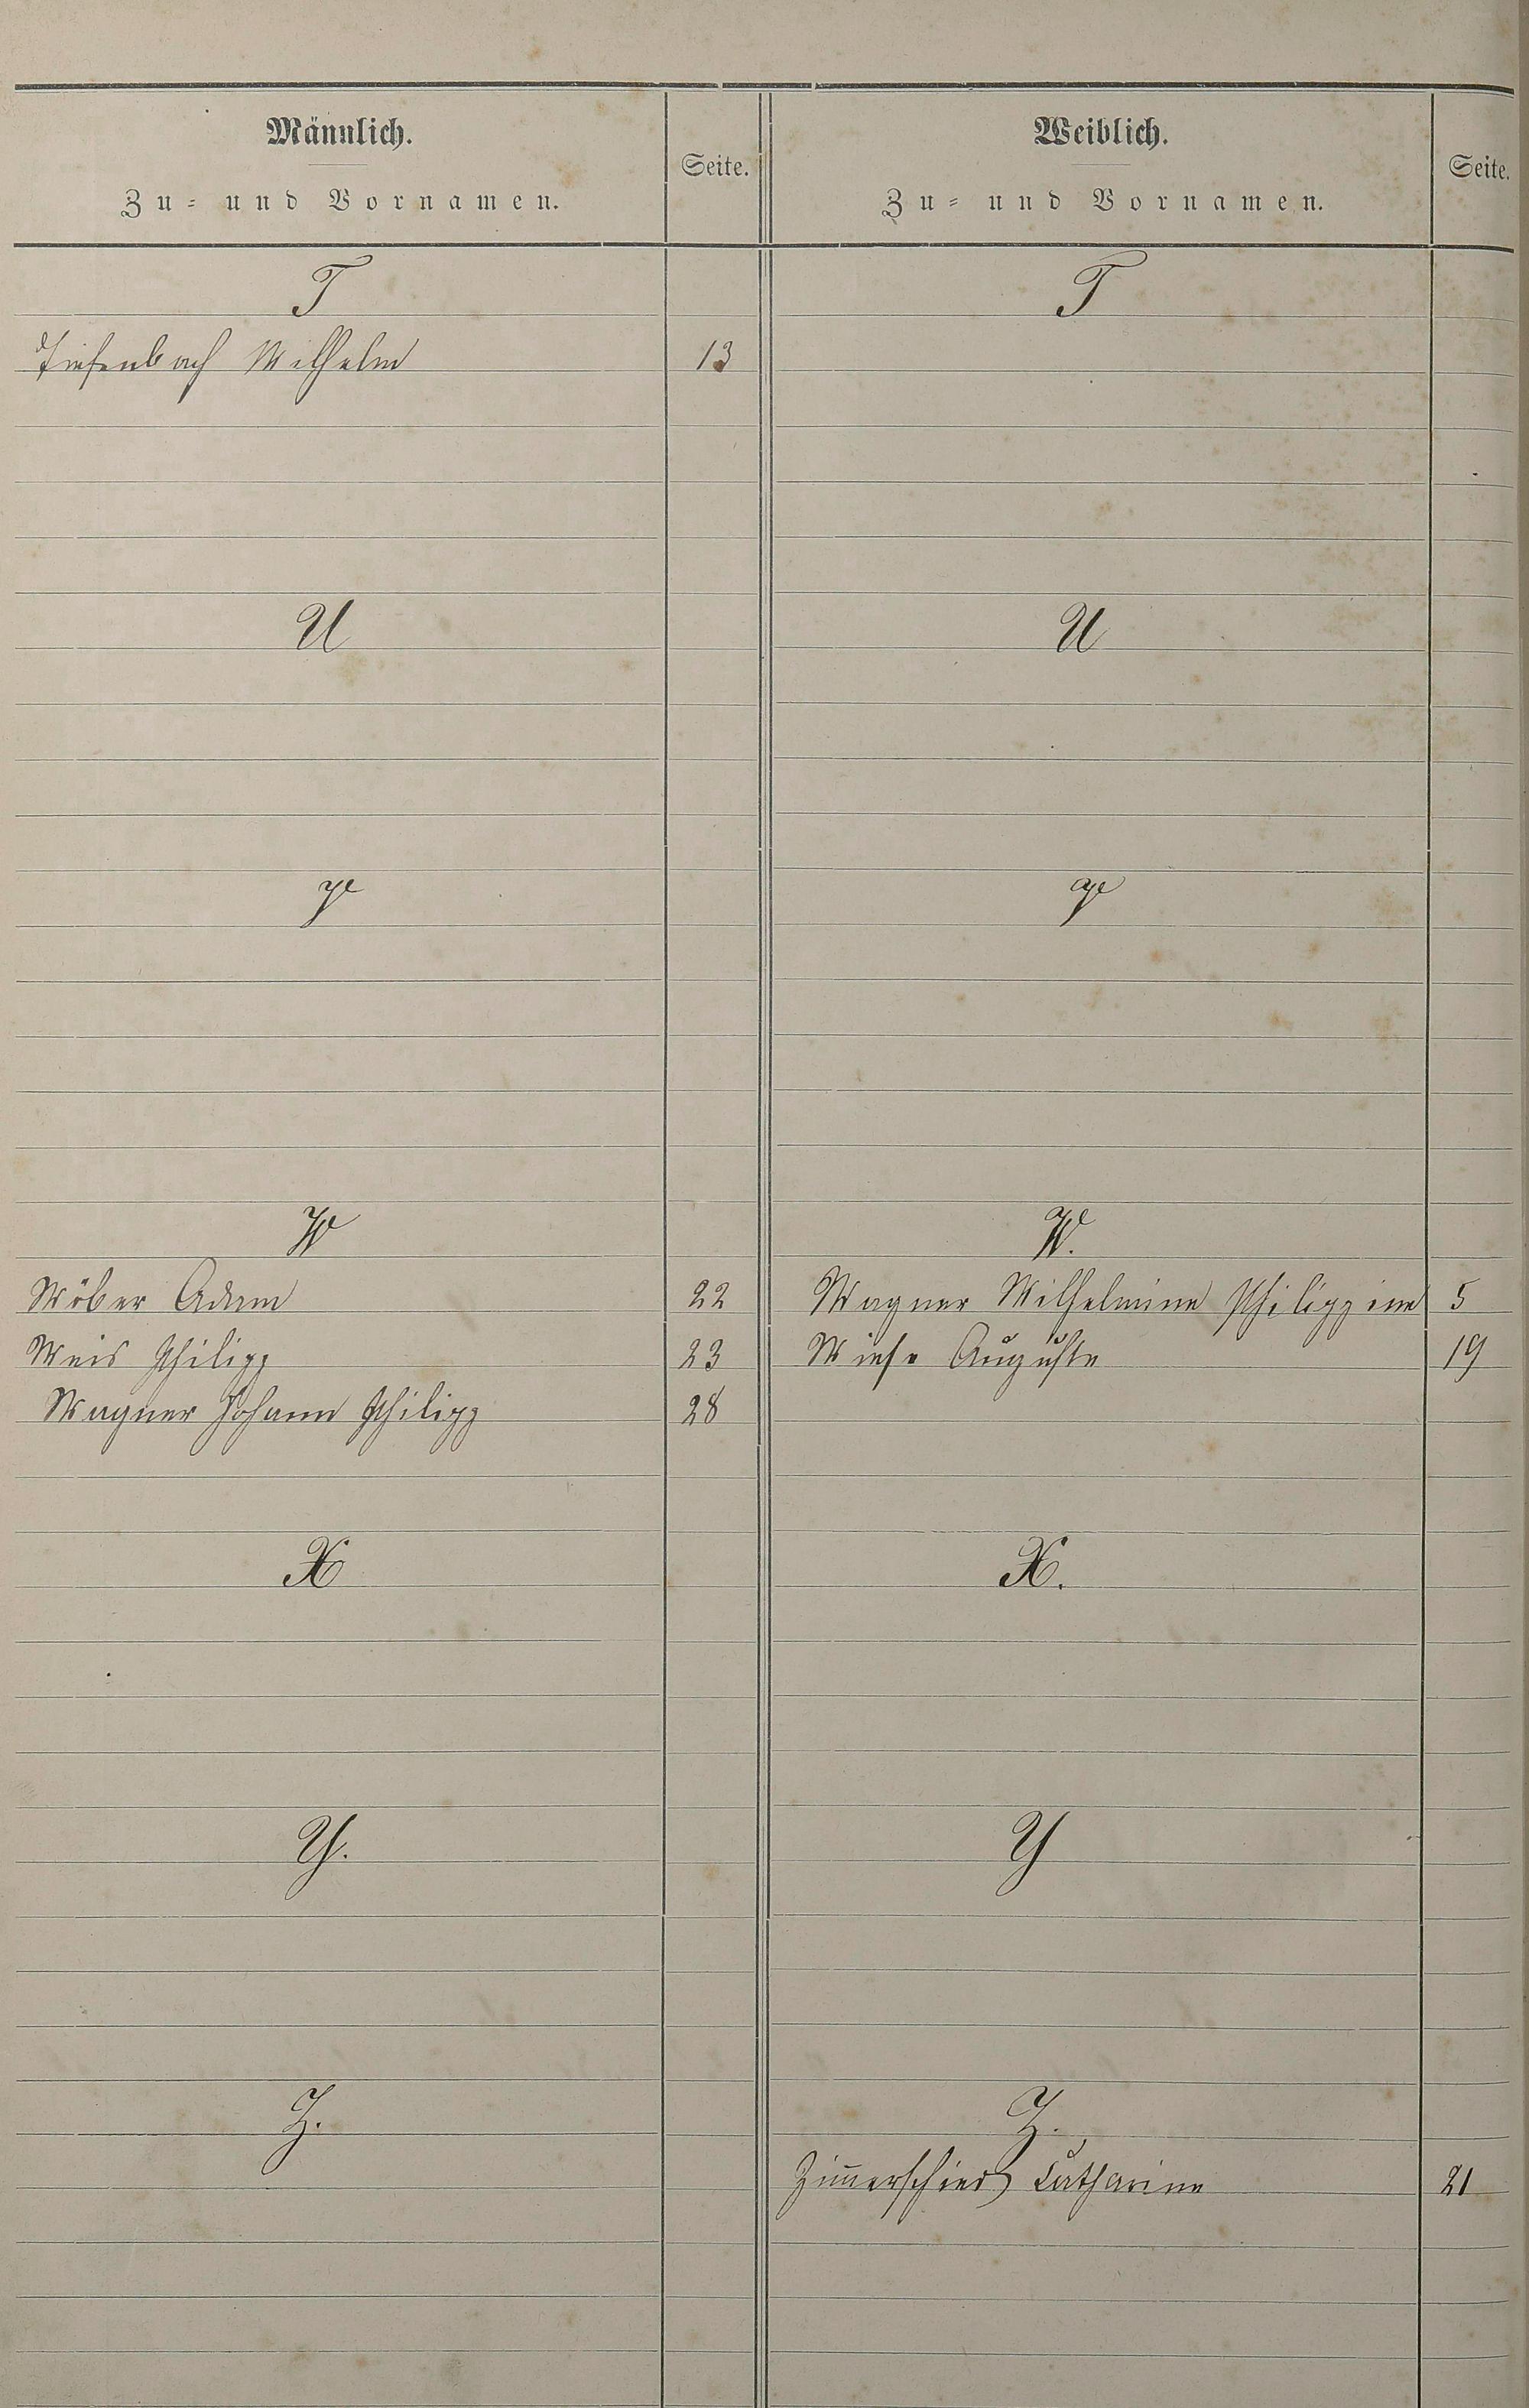 Männlich.
Zu- und Vornamen.
Seite.
Weiblich.
Zu- und Vornamen.
Seite.
T
T
Tiefenbach Wilhelm 13
U
U
V
V
W
W.
Wöber Adam 22
Wagner Wilhelmine Philippine 5
Weis Philipp 23
Wiese Auguste 19
Wagner Johann Philipp 28
X
X.
Y.
Y
Z.
Z.
Zim̄erschied Catharine 21